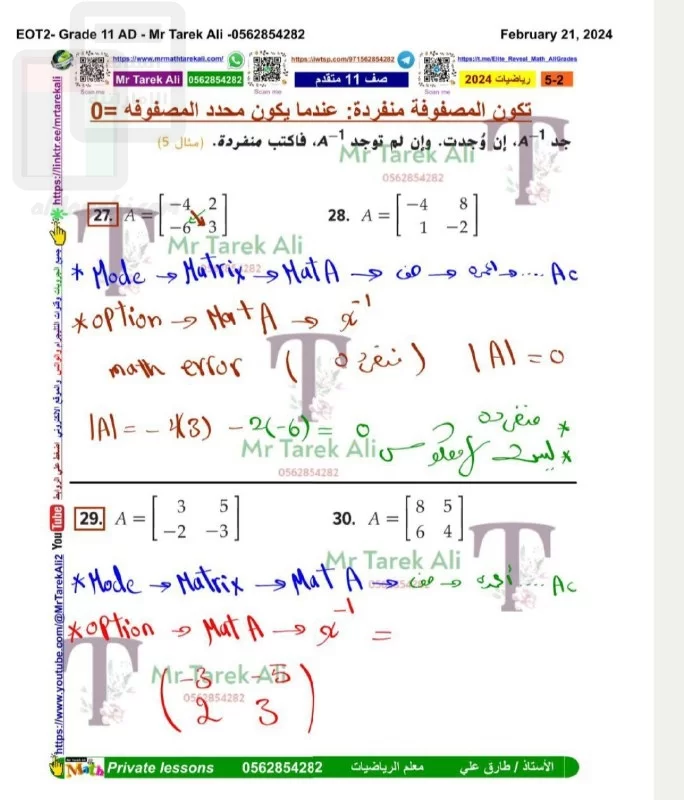 EOT2- Grade 11 AD - Mr Tarek Ali -0562854282 February 21, 2024
https://www.mrmathtarekali.com/ https://iwtsp.com/971562854282 https://t.me/Elite_Reveal_Math_AllGrades
Mr Tarek Ali 0562854282 صف 11 متقدم رياضيات 2024 5-2
Scan me Scan me Scan me
تكون المصفوفة منفردة: عندما يكون محدد المصفوفه =0
جد A⁻¹، إن وُجدت. وإن لم توجد A⁻¹، فاكتب منفردة. (مثال 5)
Mr Tarek Ali
0562854282
27. A = [−4 2 28. A = [−4 8
−6 3] 1 −2]
Mr Tarek Ali
* Mode → Matrix → Mat A → صف → اعمدة → .... Ac
* option → Mat A → x⁻¹
math error (منفرده) |A| = 0
|A| = -4(3) - 2(-6) = 0
* منفرده
* ليس لها معكوس
Mr Tarek Ali
0562854282
29. A = [3 5 30. A = [8 5
−2 −3] 6 4]
Mr Tarek Ali
* Mode → Matrix → Mat A → صف → أعمدة .... Ac
* option → Mat A → x⁻¹ =
Mr Tarek Ali
0562854282
(-3 -5
2 3)
https://linktr.ee/mrtarekali
https://www.youtube.com/@MrTarekAli2 YouTube
Math Private lessons 0562854282 معلم الرياضيات الأستاذ / طارق علي